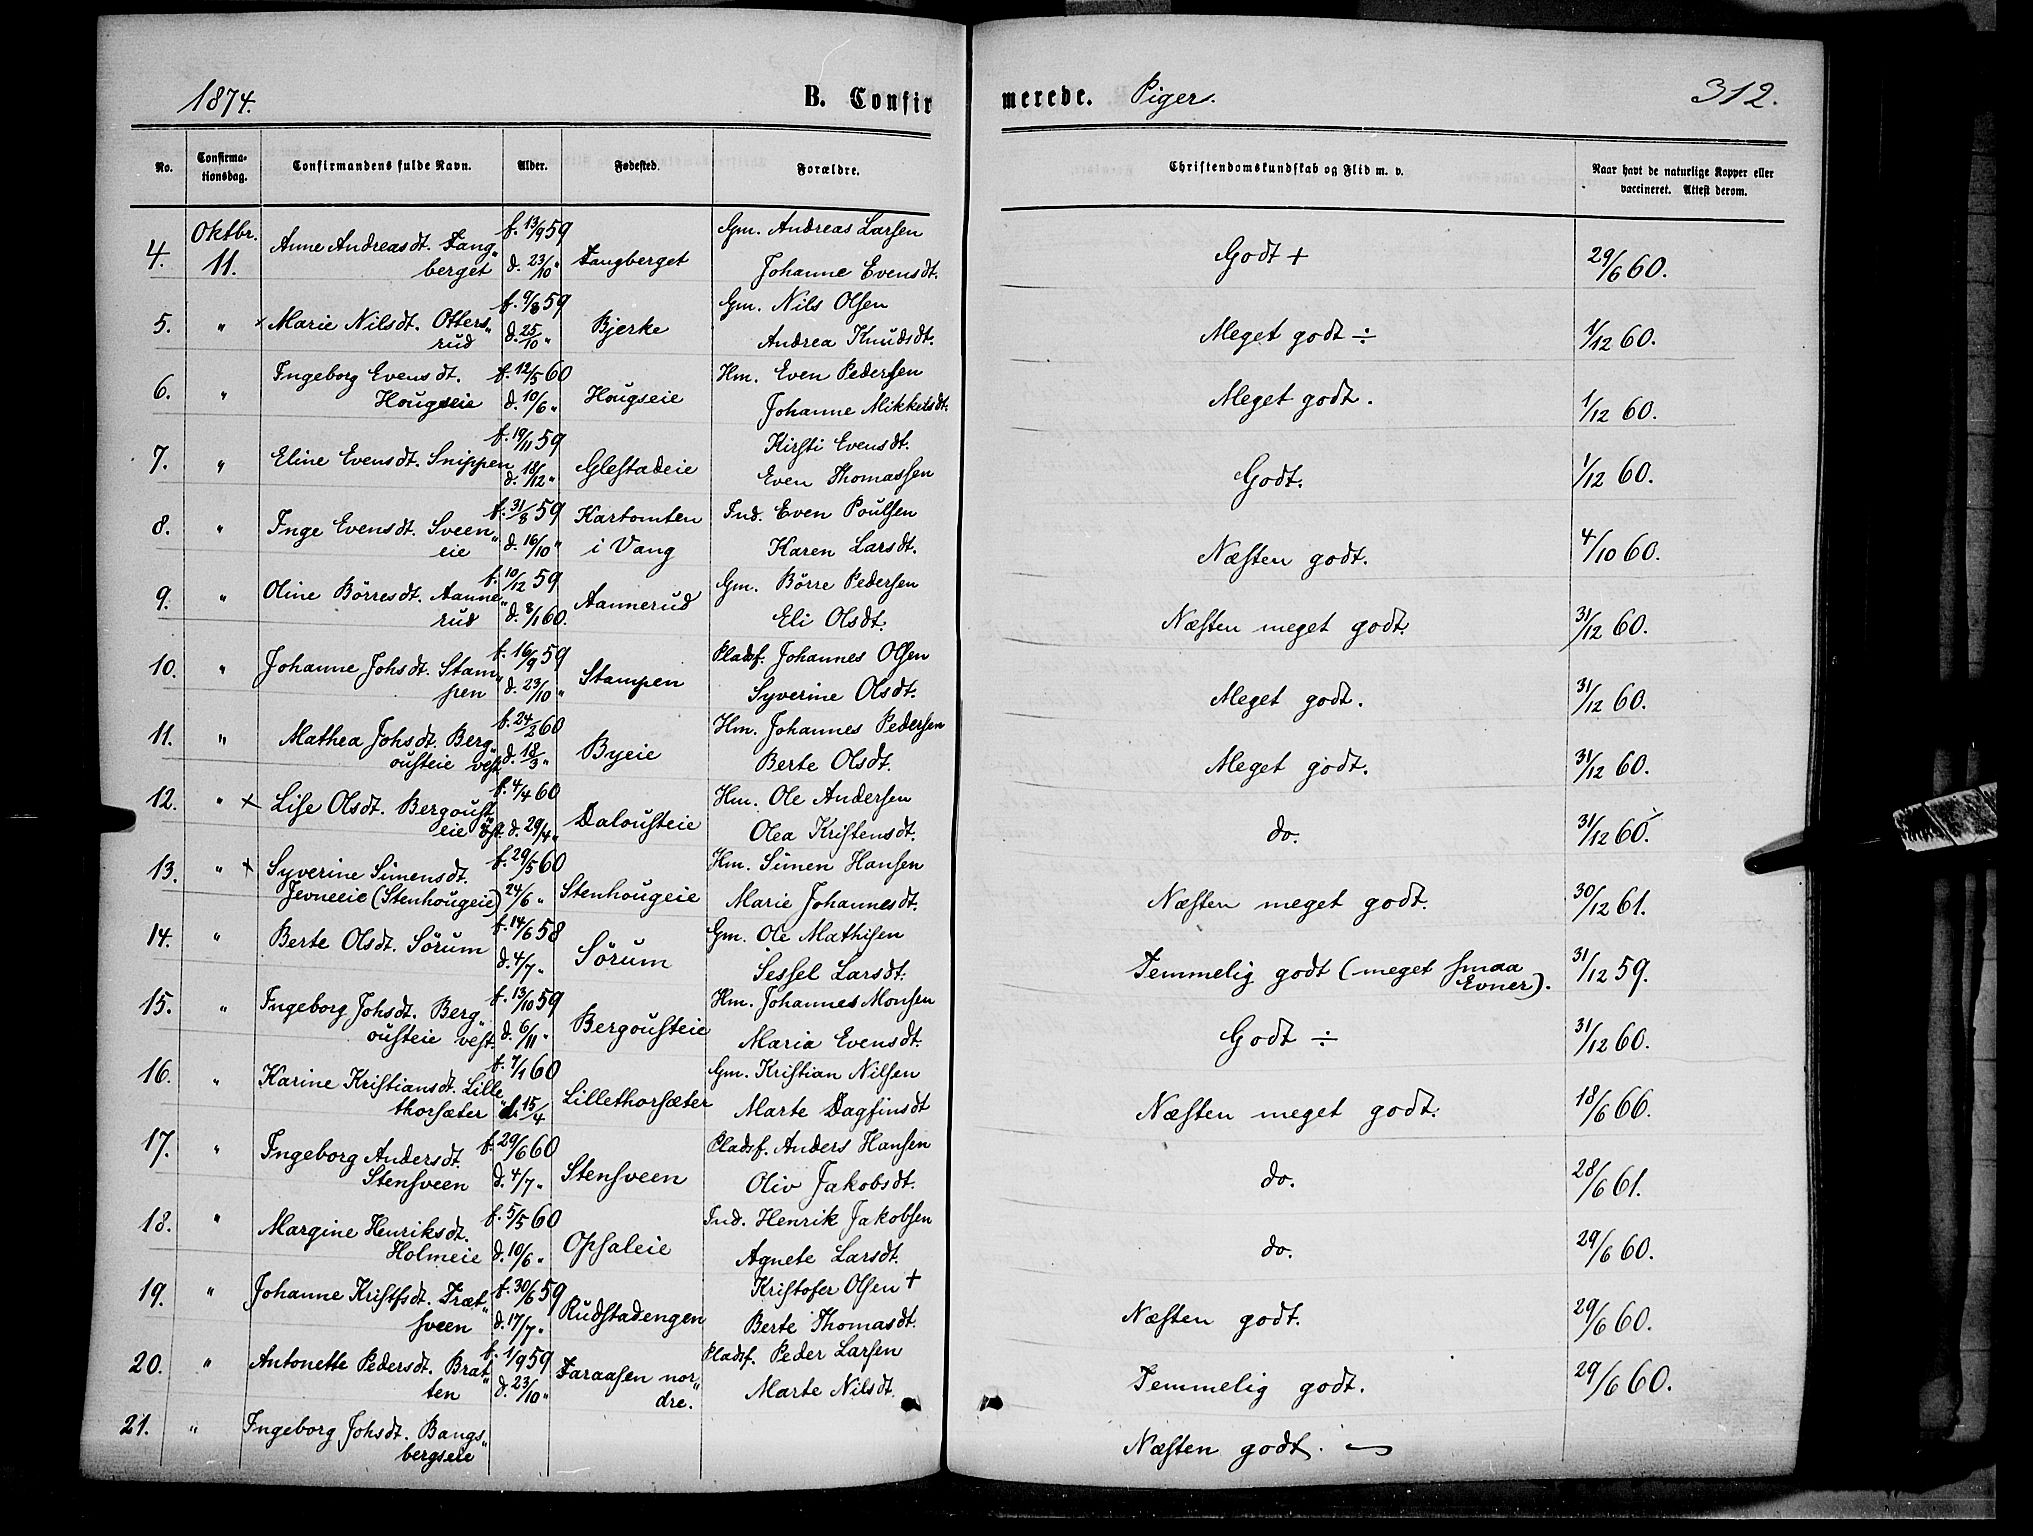 1874. B. Confirmerede. Piger. 312.
No. Confirmationsdag. Confirmandens fulde Navn. Alder. Fødested. Forældre. Christendomskundskab og Flid m. v. Naar havt de naturlige Kopper eller vaccineret. Attest derom.
4. Oktbr. 11. Anne Andreasdt. Fangberget f. 13/9 59 d. 23/10 " Fangberget Gm. Andreas Larsen Johanne Evensdt. Godt + 29/6 60.
5. " × Marie Nilsdt. Ottersrud f. 9/8 59 d. 25/10 " Bjerke Gm. Nils Olsen Andrea Knudsdt. Meget godt ÷ 1/12 60.
6. " Ingeborg Evensdt. Hougseie f. 12/5 60 d. 10/6 " Hougseie Hm. Even Pedersen Johanne Mikkelsdt. Meget godt. 1/12 60.
7. " Eline Evensdt. Snippen f. 19/11 59 d. 18/12 " Glestadeie Kirsti Evensdt. Even Thomassen Godt. 1/12 60.
8. " Inge Evensdt. Sveeneie f. 31/8 59 d. 16/10 " Kartomten i Vang Ind. Even Poulsen Karen Larsdt. Næsten godt. 4/10 60.
9. " Oline Börresdt. Aannerud f. 10/12 59 d. 8/1 60. Aannerud Gm. Börre Pedersen Eli Olsdt. Næsten meget godt. 31/12 60.
10. " Johanne Johsdt. Stampen f. 16/9 59 d. 23/10 " Stampen Pladsf. Johannes Olsen Syverine Olsdt. Meget godt. 31/12 60.
11. " Mathea Johsdt. Bergousteie vest. f. 24/2 60 d. 18/3 " Byeie Hm. Johannes Pedersen Berte Olsdt. Meget godt. 31/12 60.
12. " × Lise Olsdt. Bergousteie öst. f. 4/4 60 d. 29/4 " Dalousteie Hm. Ole Andersen Olea Kristensdt. do. 31/12 60.
13. " × Syverine Simensdt. Jevneeie (Stenhougeie) f. 29/5 60 24/6 " Stenhougeie Hm. Simen Hansen Marie Johannesdt. Næsten meget godt. 30/12 61.
14. " Berte Olsdt. Sörum f. 14/6 58 d. 4/7 " Sörum Gm. Ole Mathisen Sessel Larsdt. Temmelig godt (meget smaa Evner). 31/12 59.
15. " Ingeborg Johsdt. Bergousteie vest. f. 13/10 59 d. 6/11 " Bergousteie Hm. Johannes Monsen Maria Evensdt. Godt ÷ 31/12 60.
16. " Karine Kristiansdt. Lillethorsæter f. 7/1 60 d. 15/4 Lillethorsæter Gm. Kristian Nilsen Marte Dagfinsdt Næsten meget godt. 18/6 66.
17. " Ingeborg Andersdt. Stensveen f. 29/6 60 d. 4/7 " Stensveen Pladsf. Anders Hansen Oliv Jakobsdt. do. 28/6 61.
18. " Margine Henriksdt. Holmeie f. 5/5 60 d. 10/6 " Opsaleie Ind. Henrik Jakobsen Agnete Larsdt. do. 29/6 60.
19. " Johanne Kristfsdt. Trætsveen f. 30/6 59 d. 17/7 " Rudstadengen Kristofer Olsen + Berte Thomasdt. Næsten godt. 29/6 60.
20. " Antonette Pedersdt. Bratten f. 1/9 59 d. 23/10 " Faraasen nordre. Pladsf. Peder Larsen Marte Nilsdt. Temmelig godt. 29/6 60.
21. " Ingeborg Johsdt. Bangsbergseie Næsten godt.